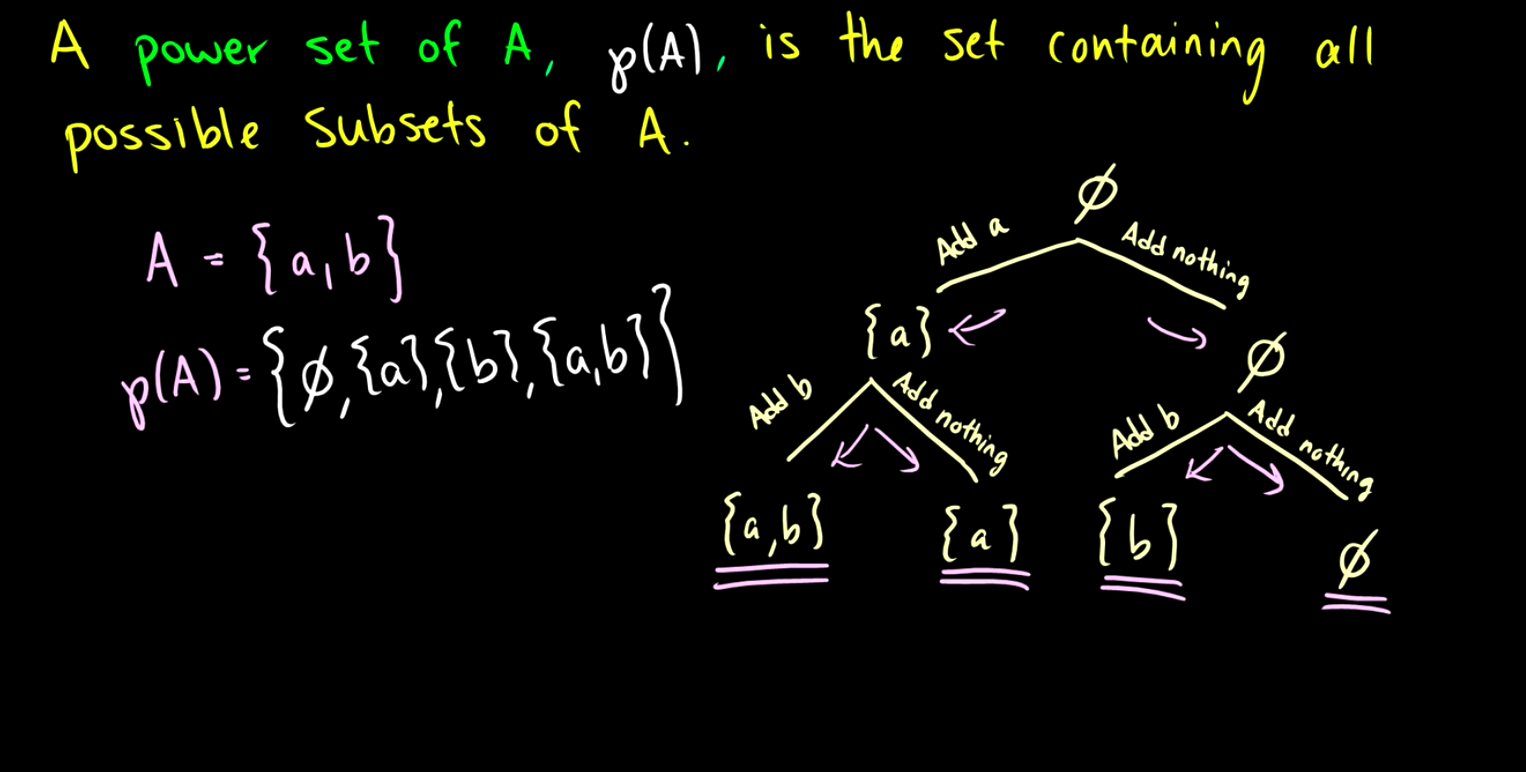 A power set of A, ℘(A), is the set containing all
possible subsets of A.
A = {a,b}
℘(A) = {∅,{a},{b},{a,b}}
∅
Add a
Add nothing
{a}
∅
Add b
Add nothing
Add b
Add nothing
{a,b}
{a}
{b}
∅